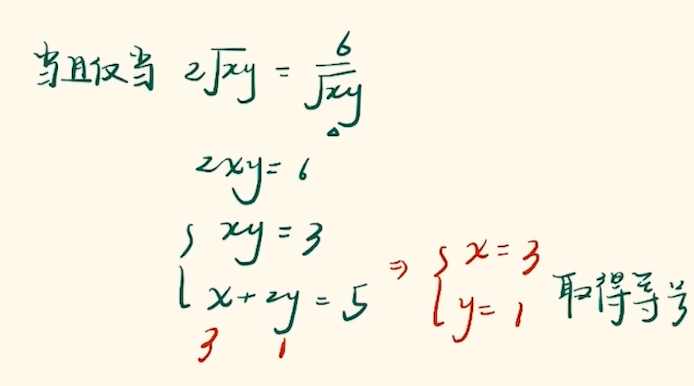 当且仅当 2√xy = 6/√xy
2xy = 6
{ xy = 3
{ x+2y = 5 ⇒ { x = 3
{ y = 1 取得等号
3 1